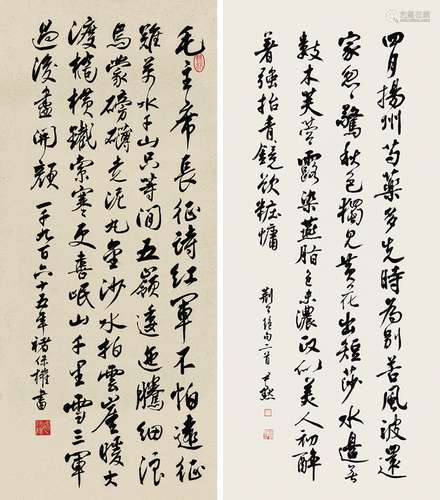 四月揚州芍藥多先時為別苦風波還
家忽〻驚秋色獨見黃花出短莎水邊無
數木芙蓉露染燕脂色未濃正似美人初醉
著強抬青鏡欲粧慵
荊公絕句二首尹默
毛主席長征詩紅軍不怕遠征
難萬水千山只等閒五嶺逶迤騰細浪
烏蒙磅礴走泥丸金沙水拍雲崖暖大
渡橋橫鐵索寒更喜岷山千里雪三軍
過後盡開顏
一千九百六十五年褚保權書